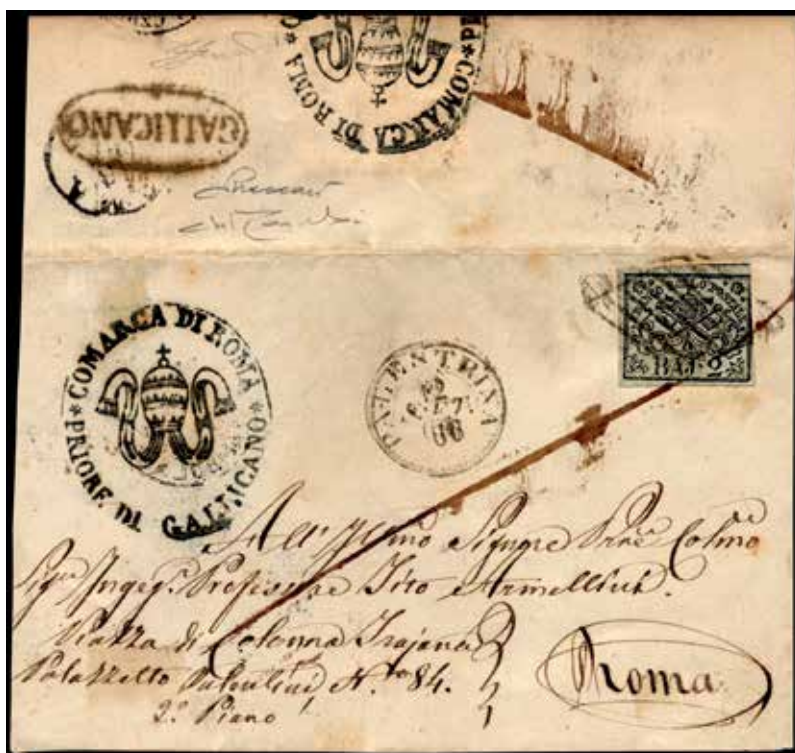 COMARCA DI ROMA
GALLICANO
COMARCA DI ROMA * PRIORE DI GALLICANO *
PALESTRINA
SET
66
BAJ. 2
All' Illmo Signore Prne Colmo
Sigr Ingegr. Professore Tito Armellini.
Piazza di Colonna Trajana
Palazzetto Valentini No 84.
2o Piano
Roma